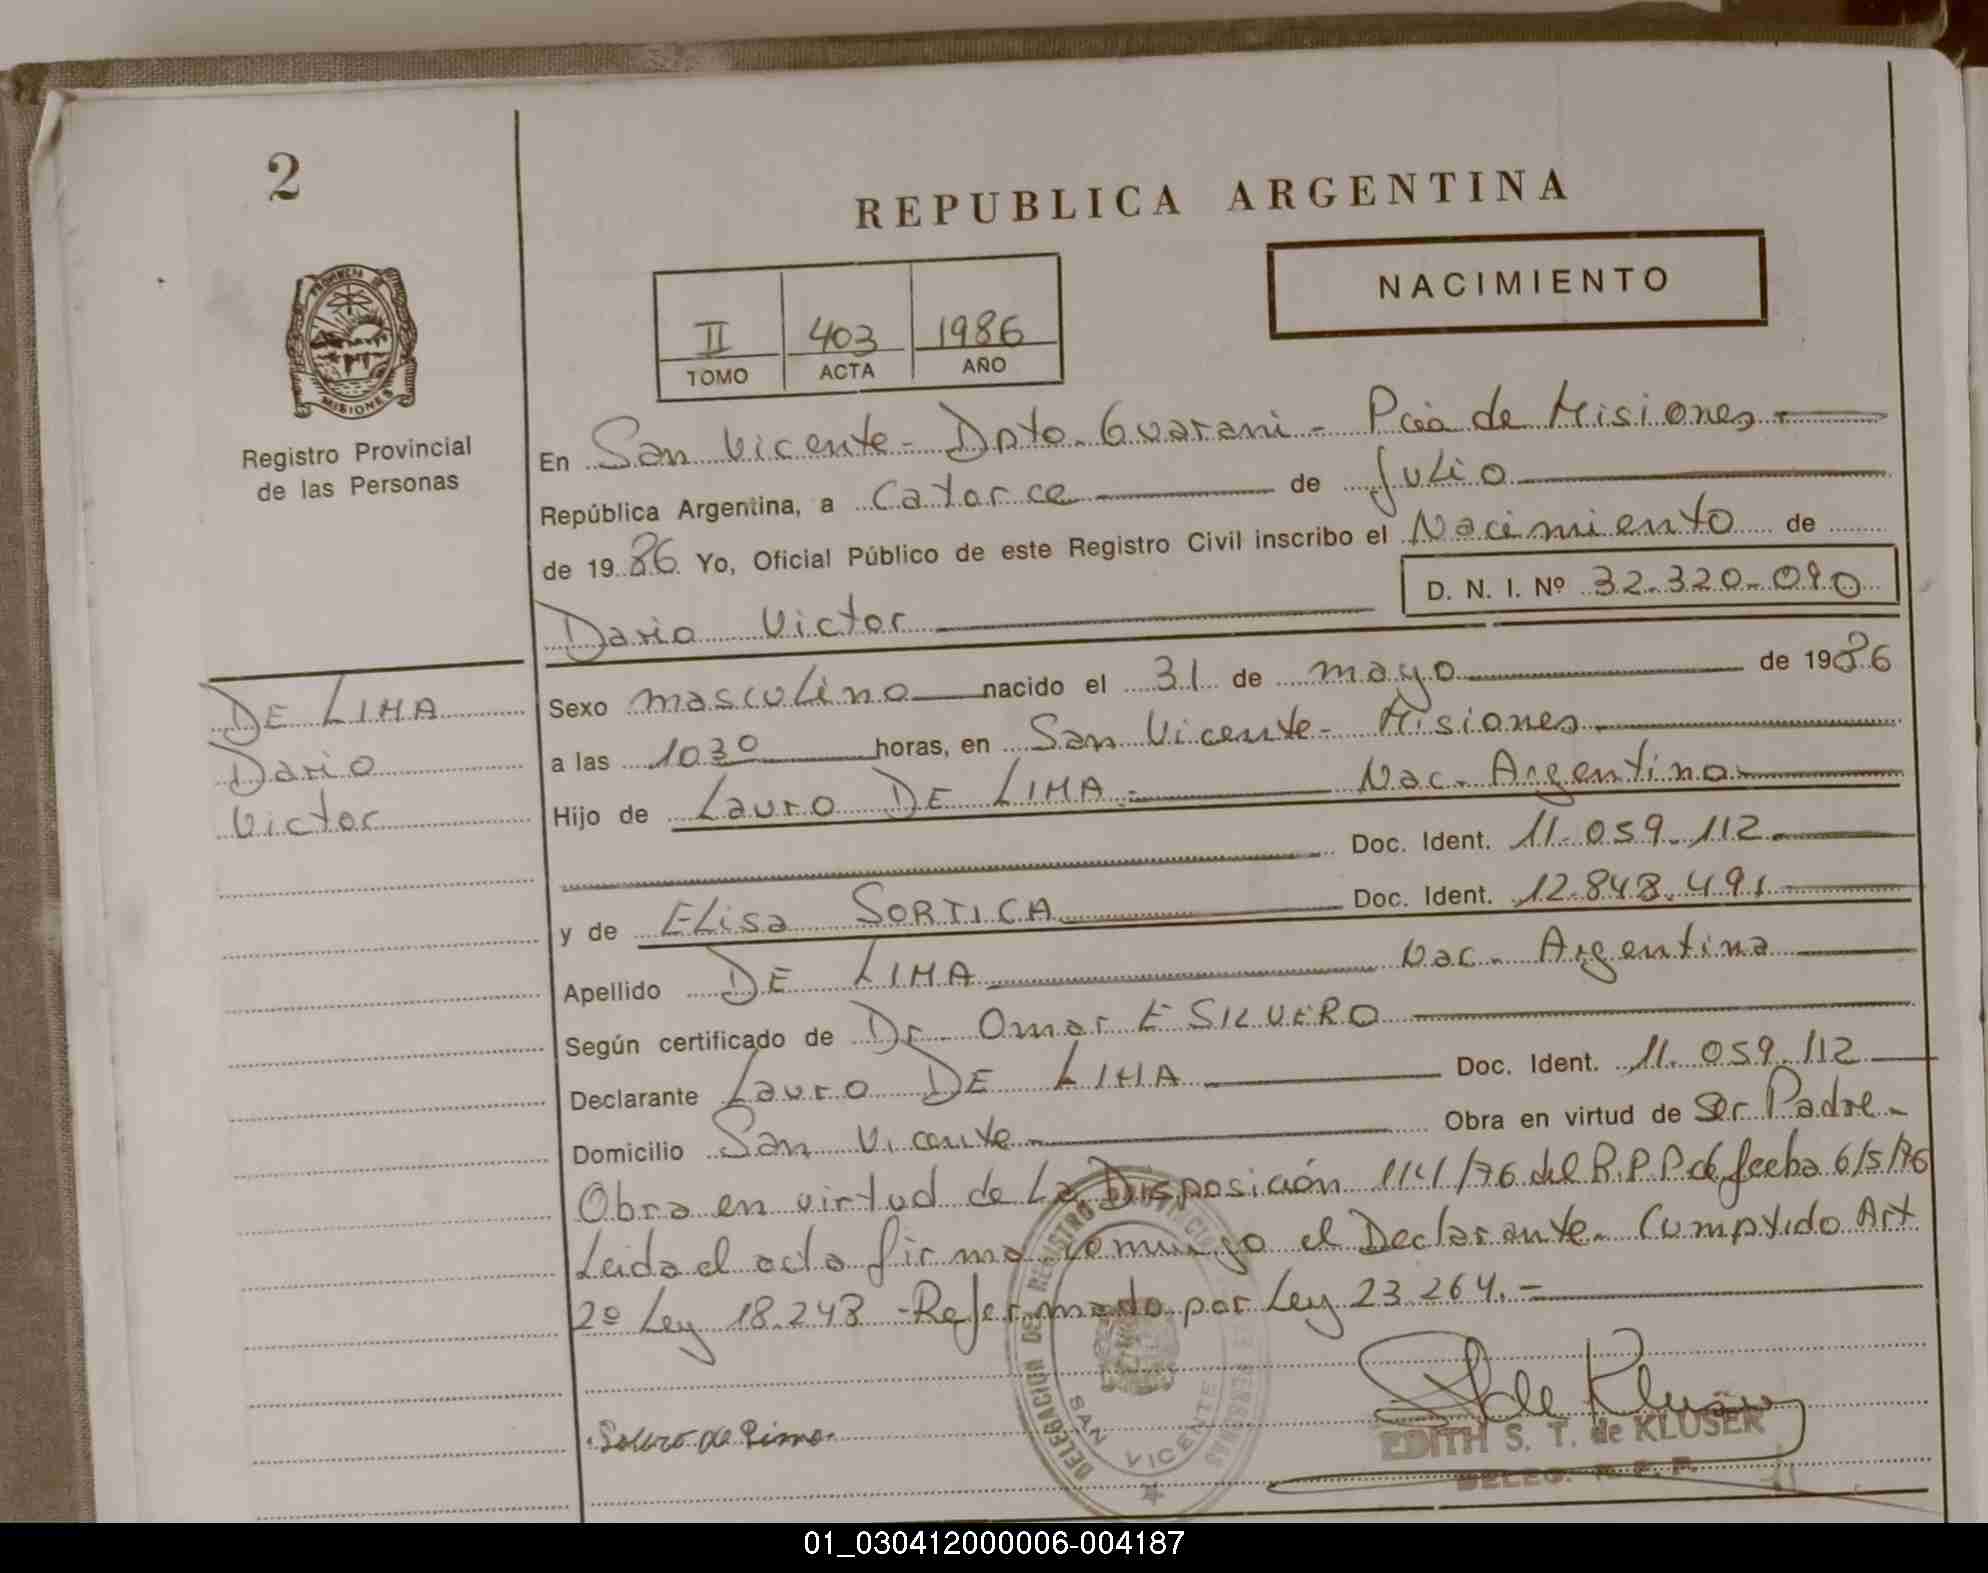 2
REPUBLICA ARGENTINA
NACIMIENTO
II 403 1986
TOMO ACTA AÑO
PROVINCIA DE
MISIONES
Registro Provincial
de las Personas
En San Vicente - Dpto. Guarani - Pcia de Misiones.-
República Argentina, a Catorce de Julio
de 1986 Yo, Oficial Público de este Registro Civil inscribo el Nacimiento de
D. N. I. Nº 32.320.090
Dario Victor
DE LIMA
Dario
Victor
Sexo masculino nacido el 31 de mayo de 1986
a las 1030 horas, en San Vicente - Misiones.
Hijo de Lauro DE LIMA.- Nac. Argentino.
Doc. Ident. 11.059.112.
y de Elisa SORTICA Doc. Ident. 12.848.491
Apellido DE LIMA Nac. Argentina
Según certificado de Dr. Omar E SILVERO
Declarante Lauro DE LIMA Doc. Ident. 11.059.112
Domicilio San Vicente Obra en virtud de Ser Padre.-
Obra en virtud de La Disposición 1141/76 del R.P.P. de fecha 6/5/76
Leida el acta firma conmigo el Declarante. Cumplido Art
2º Ley 18.248 - Reformado por Ley 23.264.=
DELEGACION DE REGISTRO PROVINCIAL DE LAS PERSONAS
SAN VICENTE
EDITH S. T. de KLUSER
DELEG. R. P. P.
01_030412000006-004187